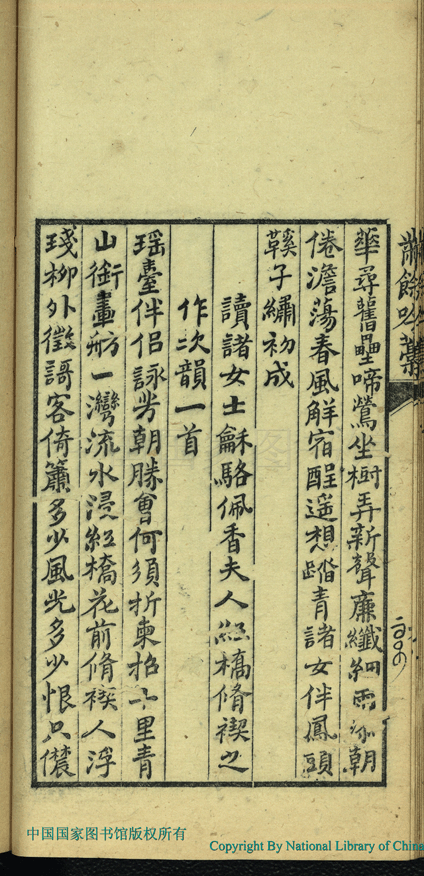 華尋舊壘啼鶯坐樹弄新聲廉纖細雨朝
倦澹蕩春風解宿酲遥想踏青諸女伴鳳頭
鞵子繡初成
讀諸女士龢駱佩香夫人紅橋脩禊之
作次韻一首
瑶臺伴侣詠芳朝勝會何須折柬招十里青
山銜畫舫一灣流水浸紅橋花前脩禊人浮
琖柳外徵謌客倚簫多少風光多少恨只儂
餘吟藁
中国国家图书馆版权所有
Copyright By National Library of China